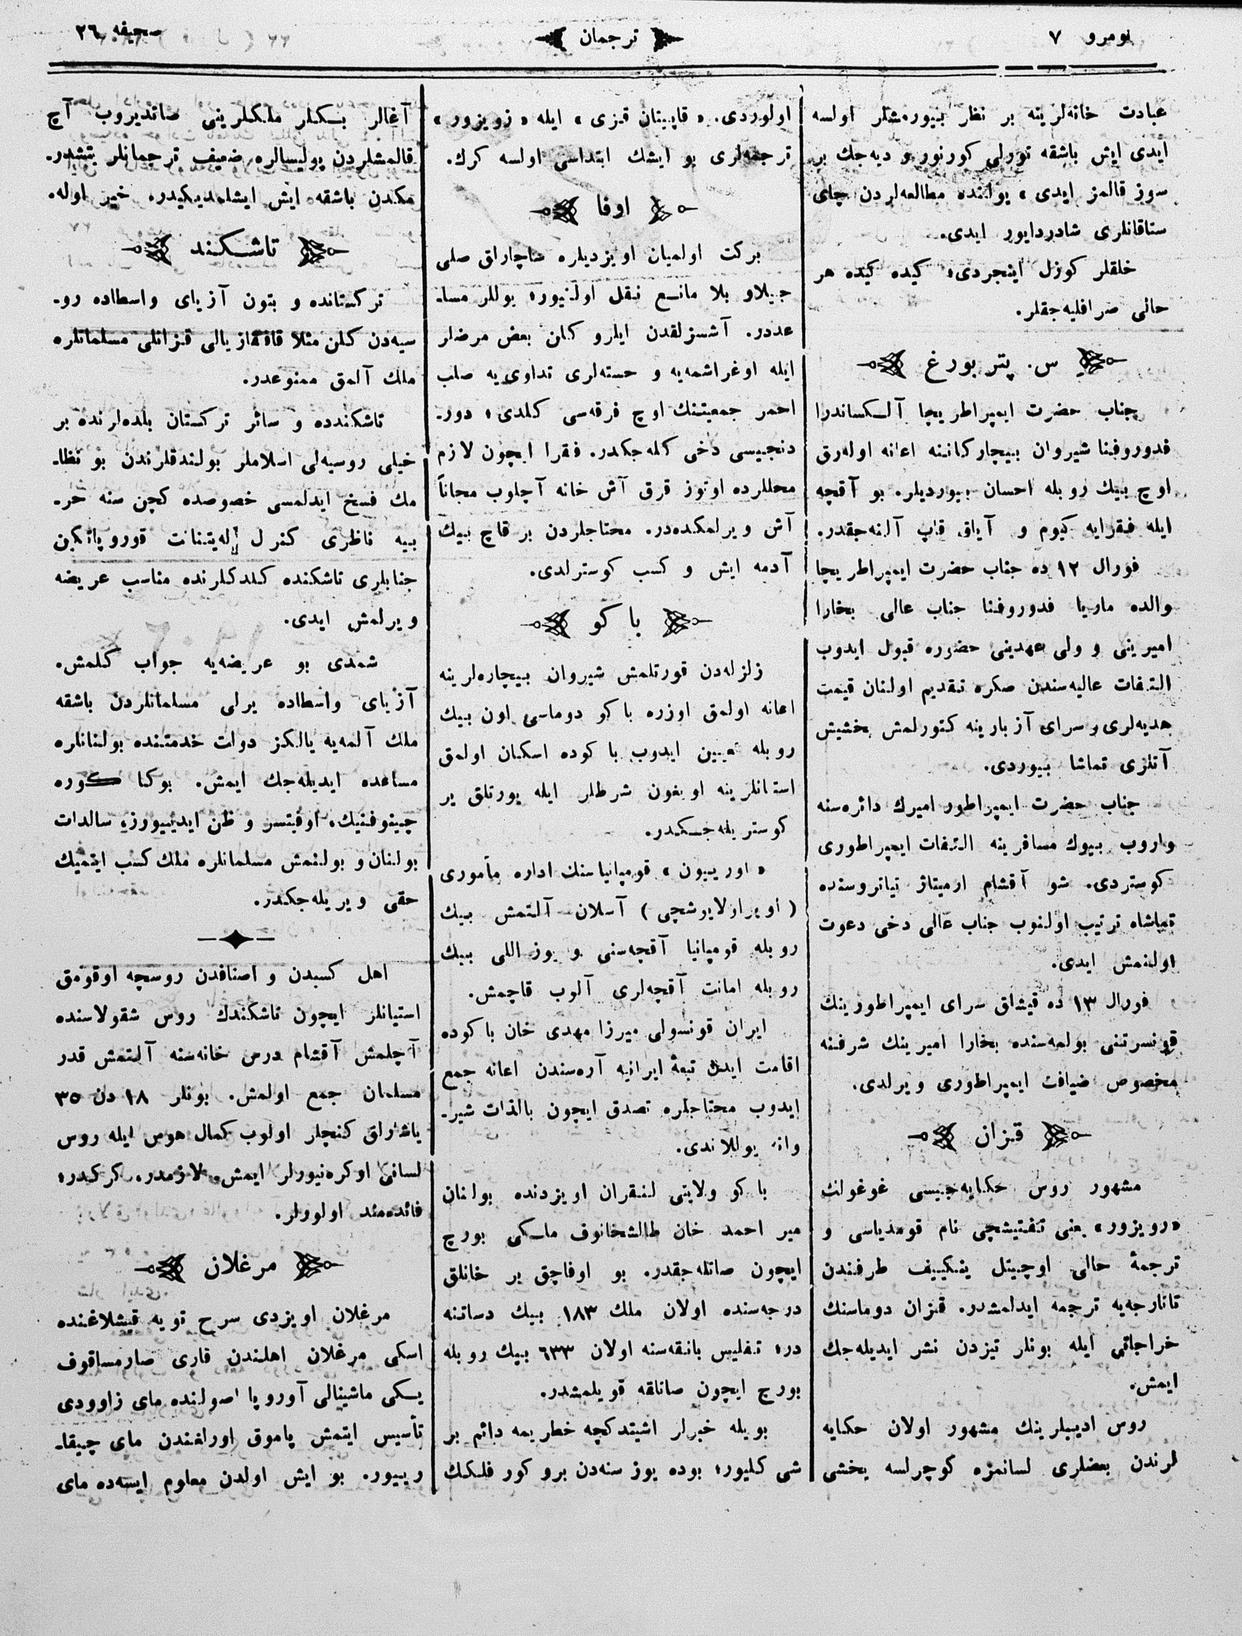 نومرو ٧
ترجمان
صحیفه ٢٦
عبادت خانه‌لرینه بر نظر بیورمشلر اولسه
ایدی ایش باشقه تورلی کورنور و دیه‌جك بر
سوز قالمز ایدی » یولنده مطالعه‌لردن چای
ستاقانلری شادردایور ایدی.
خلقلر کوزل اینجردی؛ کیده کیده هر
حالی صرافلیه‌جقلر.
س. پتربورغ
جناب حضرت ایمپراطریچا آلکساندرا
فدوروفنا شیروان بیچارکاننه اعانه اوله‌رق
اوچ بیك روبله احسان بیوردیلر. بو آقچه
ایله فقرایه کیوم و آیاق قاپ آلنه‌جقدر.
فورال ١٢ ده جناب حضرت ایمپراطریچا
والده ماریا فدوروفنا جناب عالی بخارا
امیرینی و ولی عهدینی حضوره قبول ایدوب
التفات عالیه‌سندن صکره تقدیم اولنان قیمت
هدیه‌لری و سرای آزبارینه کتورلمش بخشیش
آتلری تماشا بیوردی.
جناب حضرت ایمپراطور امیرك دائره‌سنه
واروب بیوك مسافرینه التفات ایمپراطوری
کوستردی. شو آقشام ارمیتاژ تیاتروسنده
تماشاه ترتیب اولنوب جناب عالی دخی دعوت
اولنمش ایدی.
فورال ١٣ ده قیشاق سرای ایمپراطورینك
قونسرتنی بولمه‌سنده بخارا امیرینك شرفنه
مخصوص ضیافت ایمپراطوری ویرلدی.
قزان
مشهور روس حکایه‌جیسی غوغولك
«رویزور» یعنی تفتیشچی نام قومدیاسی و
ترجمهٔ حالی اوچیتل یتکییف طرفندن
تاتارجه‌یه ترجمه ایدلمشدر. قزان دوماسنك
خراجاتی ایله بونلر تیزدن نشر ایدیله‌جك
ایمش.
روس ادیبلرینك مشهور اولان حکایه
لرندن بعضلری لسانمزه کوچرلسه یخشی
اولوردی. « قاپیتان قزی » ایله « رویزور »
ترجمه‌لری بو ایشك ابتداسی اولسه کرك.
اوفا
برکت اولمیان اویزدیلره صاچاراق صلی
جیلاو بلا مانع نقل اولنیور؛ یوللر مسا-
عددر. آشسزلقدن ایلرو کلن بعض مرضلر
ایله اوغراشمه‌یه و خسته‌لری تداوی‌یه صلب
احمر جمعیتنك اوچ فرقه‌سی کلدی؛ دور-
دنجیسی دخی کله‌جکدر. فقرا ایچون لازم
محللرده اوتوز قرق آش خانه آچلوب مجاناً
آش ویرلمکده‌در. محتاجلردن بر قاچ بیك
آدمه ایش و کسب کوسترلدی.
باکو
زلزله‌دن قورتلمش شیروان بیچاره‌لرینه
اعانه اولمق اوزره باکو دوماسی اون بیك
روبله تعیین ایدوب باکوده اسکان اولمق
استانلرینه اویغون شرطلر ایله یورتلق یر
کوستریله‌جکدر.
« اوریبون » قومپانیاسنك اداره مأموری
( اوپراولایوشچی ) آسلان آلتمش بیك
روبله قومپانیا آقچه‌سنی و یوز اللی بیك
روبله امانت آقچه‌لری آلوب قاچمش.
ایران قونسولی میرزا مهدی خان باکوده
اقامت ایدن تبعهٔ ایرانیه آره‌سندن اعانه جمع
ایدوب محتاجلره تصدق ایچون بالذات شیر-
وانه یوللاندی.
باکو ولایتی لنقران اویزدنده بولنان
میر احمد خان طالشخانوف ملکی بورچ
ایچون صاتله‌جقدر. بو اوفاچق بر خانلق
درجه‌سنده اولان ملك ١٨٣ بیك دساتنه
در؛ تفلیس بانقه‌سنه اولان ٦٣٣ بیك روبله
بورچ ایچون صاتلقه قویلمشدر.
بویله خبرلر اشیتدکچه خطریمه دائم بر
شی کلیور؛ بوده یوز سنه‌دن برو کور فلکك
آغالر بکلر ملکلرینی صاتدیروب آچ
قالمشلردن پولیسالره ضعیف ترجمانلر یتشدر-
مکدن باشقه ایش ایشلمدیکیدر. خیر اوله.
تاشکند
ترکستانده و بتون آزیای واسطاده رو-
سیه‌دن کلن مثلا قافقازیالی قزانلی مسلمانلره
ملك آلمق ممنوعدر.
تاشکندده و سائر ترکستان بلده‌لرنده بر
خیلی روسیه‌لی اسلاملر بولندقلرندن بو نظا-
مك فسخ ایدلمسی خصوصده کچن سنه حر-
بیه ناظری کنرل لیتنانت قوروپاتکین
جنابلری تاشکنده کلدکلرنده مناسب عریضه
ویرلمش ایدی.
شمدی بو عریضه‌یه جواب کلمش.
آزیای واسطاده یرلی مسلمانلردن باشقه
ملك آلمه‌یه یالکز دولت خدمتنده بولنانلره
مساعده ایدیله‌جك ایمش. بوکا کوره
چینوفنیك، اوفیتسر و ظن ایدییورز، سالدات
بولنان و بولنمش مسلمانلره ملك کسب ایتمیك
حقی ویریله‌جکدر.
اهل کسبدن و اصنافدن روسچه اوقومق
استیانلر ایچون تاشکندك روس شقولاسنده
آچلمش آقشام درس خانه‌سنه آلتمش قدر
مسلمان جمع اولمش. بونلر ١٨ دن ٣٥
یاشارلق کنجلر اولوب کمال هوس ایله روس
لسانی اوکره‌نیورلر ایمش. لازمدر، کرکدر؛
فائده‌مند اولورلر.
مرغلان
مرغلان اویزدی سرح تویه قیشلاغنده
اسکی مرغلان اهلندن قاری صارمساقوف
یکی ماشینالی آوروپا اصولنده مای زاوودی
تأسیس ایتمش پاموق اورلغندن مای چیقا-
رییور. بو ایش اولدن معلوم ایسه‌ده مای